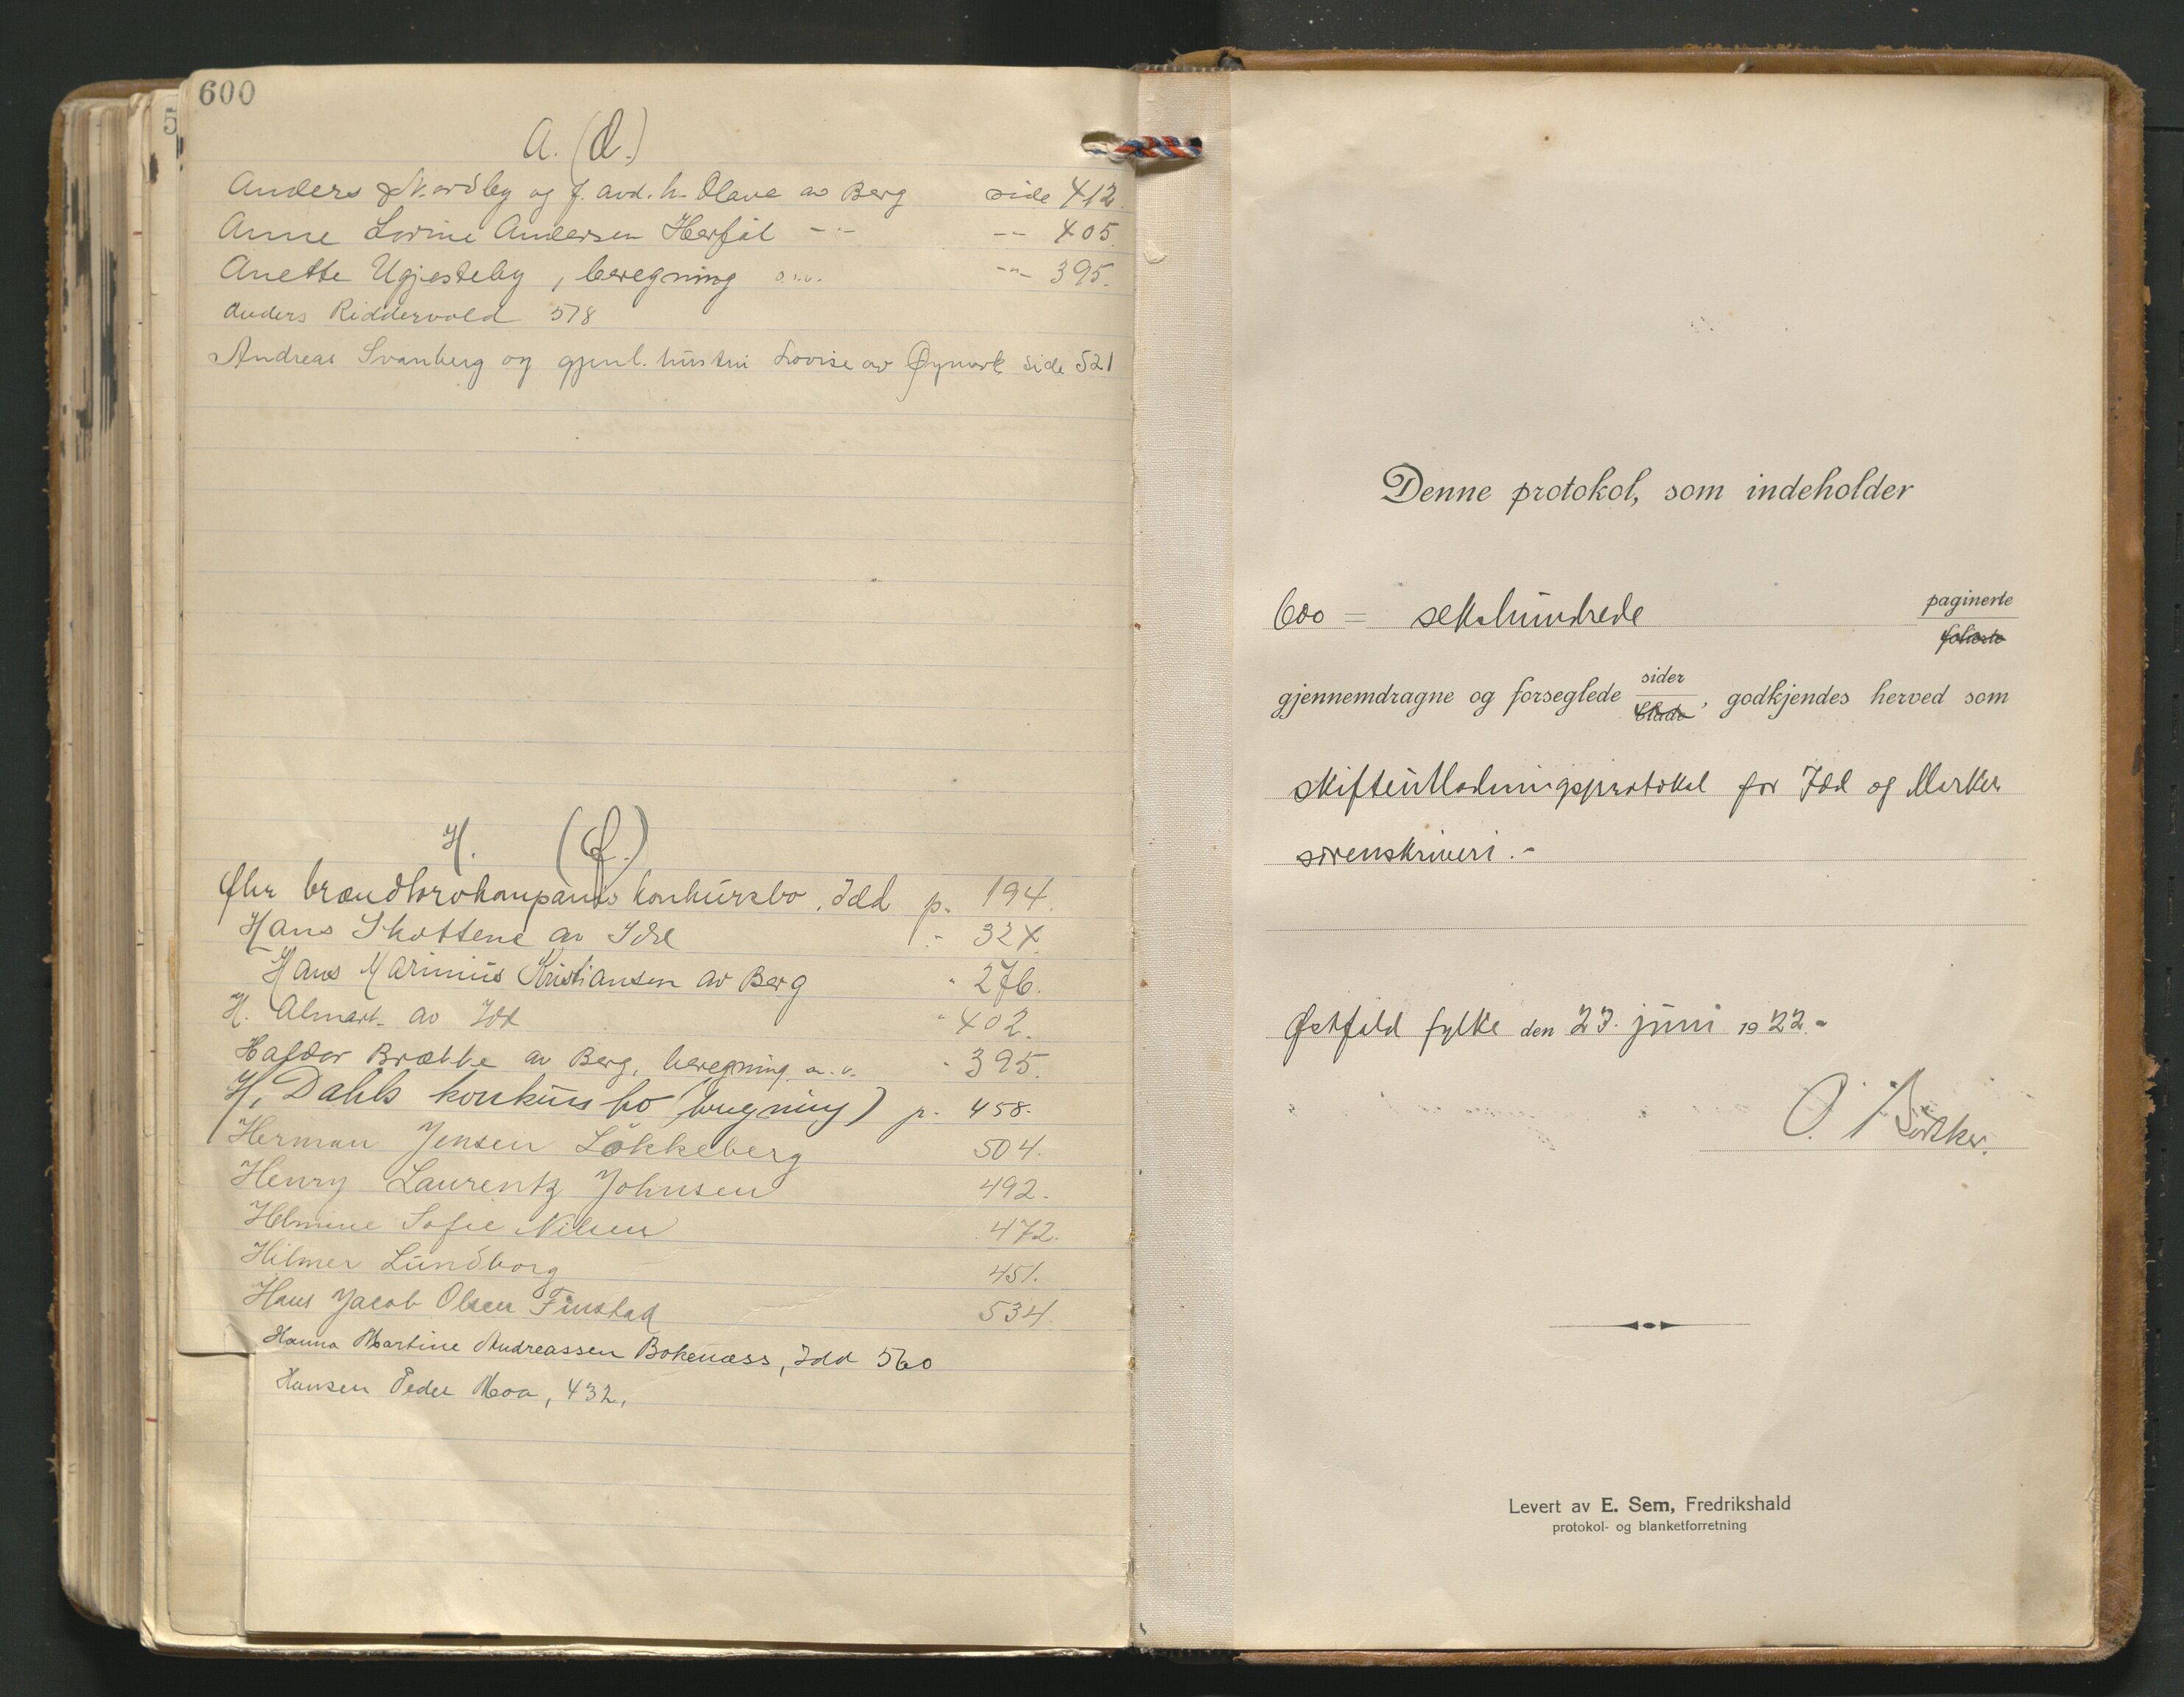 600
A. (d.)
Anders Nordby og f. avd. h. Olava av Berg side 412.
Anne Lovine Andersen Herføl -"- -- 405.
Anette Ugjesteby, beregning o.v. -"- 395.
Anders Riddervold 578
Andreas Svanberg og gjenl. hustru Lovise av Øymark side 521
H. (f.)
brændtorvkompanis konkursbo, Idd p. 194.
Hans Skottene av Idd - 324.
Hans Marinius Kristiansen av Berg " 276.
H. Almart. av Idd " 402.
Hafdor Brække av Berg, beregning o.v. " 395.
H. Dahls konkursbo (beregning) p. 458.
Herman Jensen Løkkeberg 504.
Henry Laurentz Johnsen 492.
Helmine Sofie Nilsen 472.
Hilmer Lundborg 451.
Hans Jacob Olsen Finstad 534.
Hanna Martine Andreassen Bokenæss, Idd 560
Hansen Peder Moa, 432,
Denne protokol, som indeholder
600 = sekshundrede paginerte
folierte
gjennemdragne og forseglede sider
blade, godkjendes herved som
skifteutlodningsprotokol for Idd og Marker
sorenskriveri.-
Østfold fylke den 23. juni 1922.-
O.
Levert av E. Sem, Fredrikshald
protokol- og blanketforretning